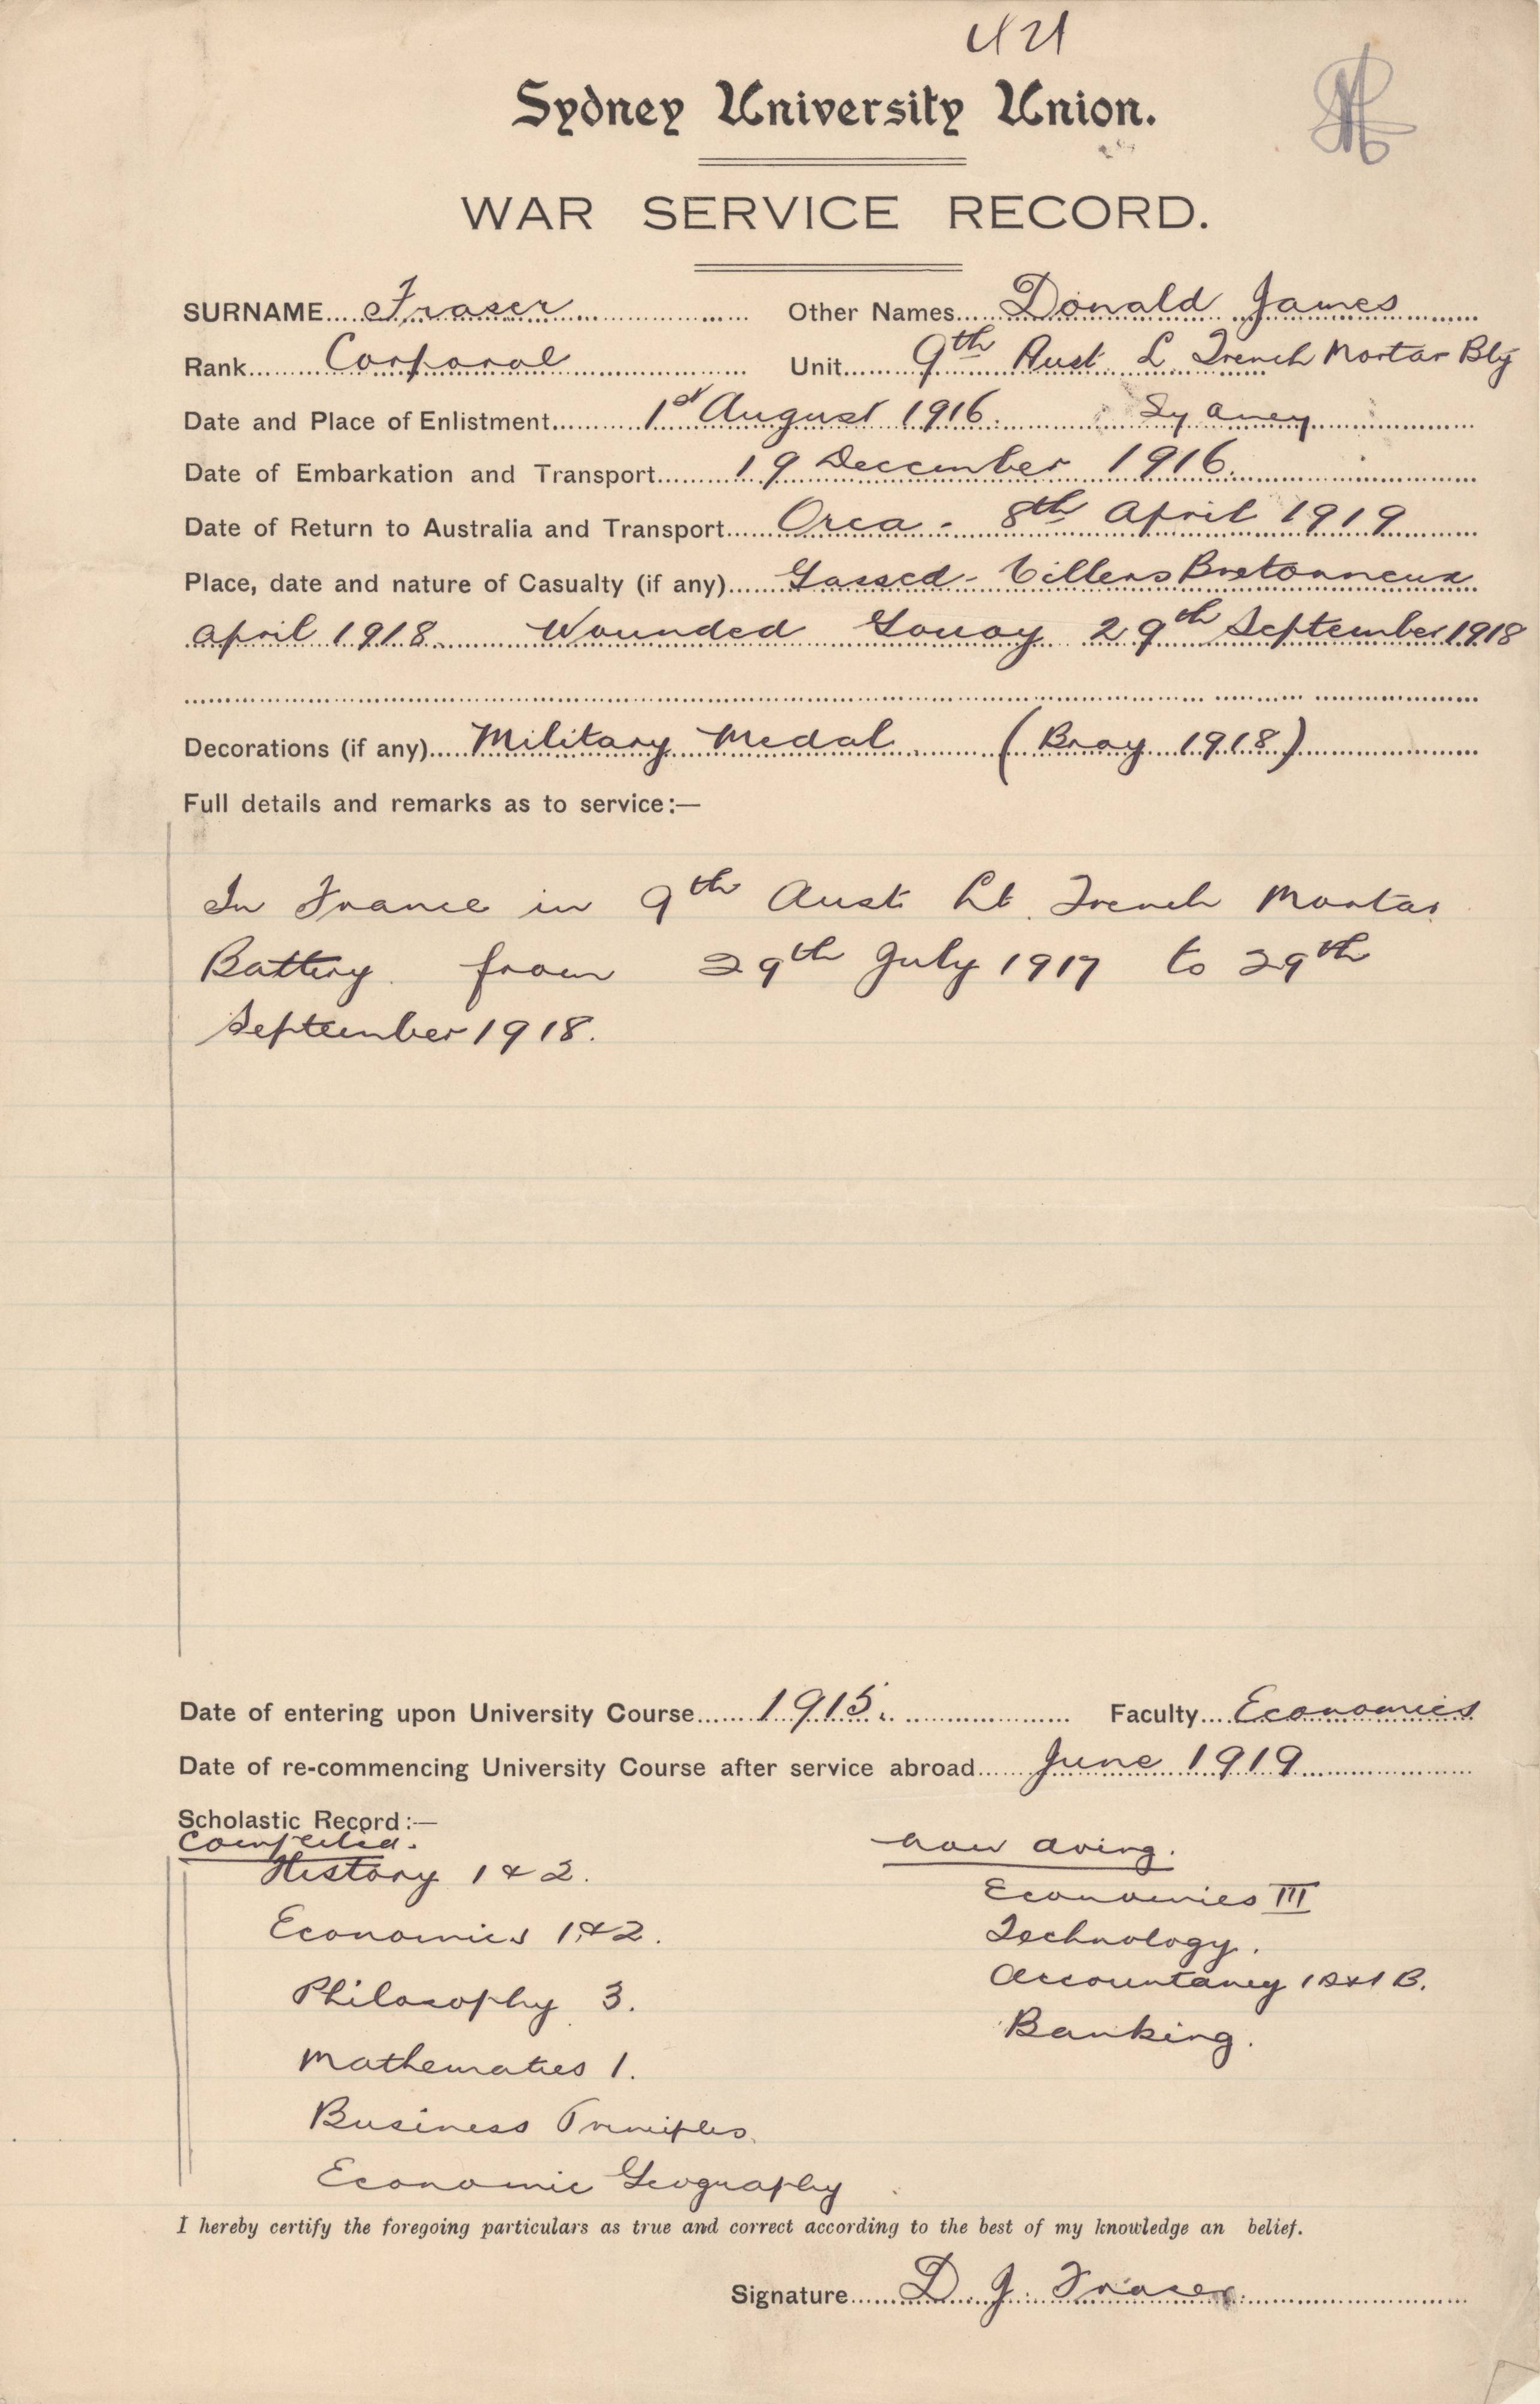 421
Sydney University Union.
WAR SERVICE RECORD.
SURNAME Fraser Other Names Donald James
Rank Corporal Unit 9th Aust L Trench Mortar Bty
Date and Place of Enlistment 1st August 1916. Sydney
Date of Embarkation and Transport 19 December 1916.
Date of Return to Australia and Transport Orca - 8th April 1919
Place, date and nature of Casualty (if any) Gassed - Villers Bretonneux
April 1918. Wounded Gouoy 29th September 1918
Decorations (if any) Military Medal. (Bray 1918)
Full details and remarks as to service:—
In France in 9th Aust Lt. Trench Mortar
Battery from 29th July 1917 to 29th
September 1918.
Date of entering upon University Course 1915. Faculty Economics
Date of re-commencing University Course after service abroad June 1919
Scholastic Record:—
Completed. Now doing.
History 1 & 2. Economics III
Economics 1 & 2. Technology.
Philosophy 3. Accountancy 1A & 1B.
Mathematics 1. Banking.
Business Principles.
Economic Geography
I hereby certify the foregoing particulars as true and correct according to the best of my knowledge an belief.
Signature D. J. Fraser.